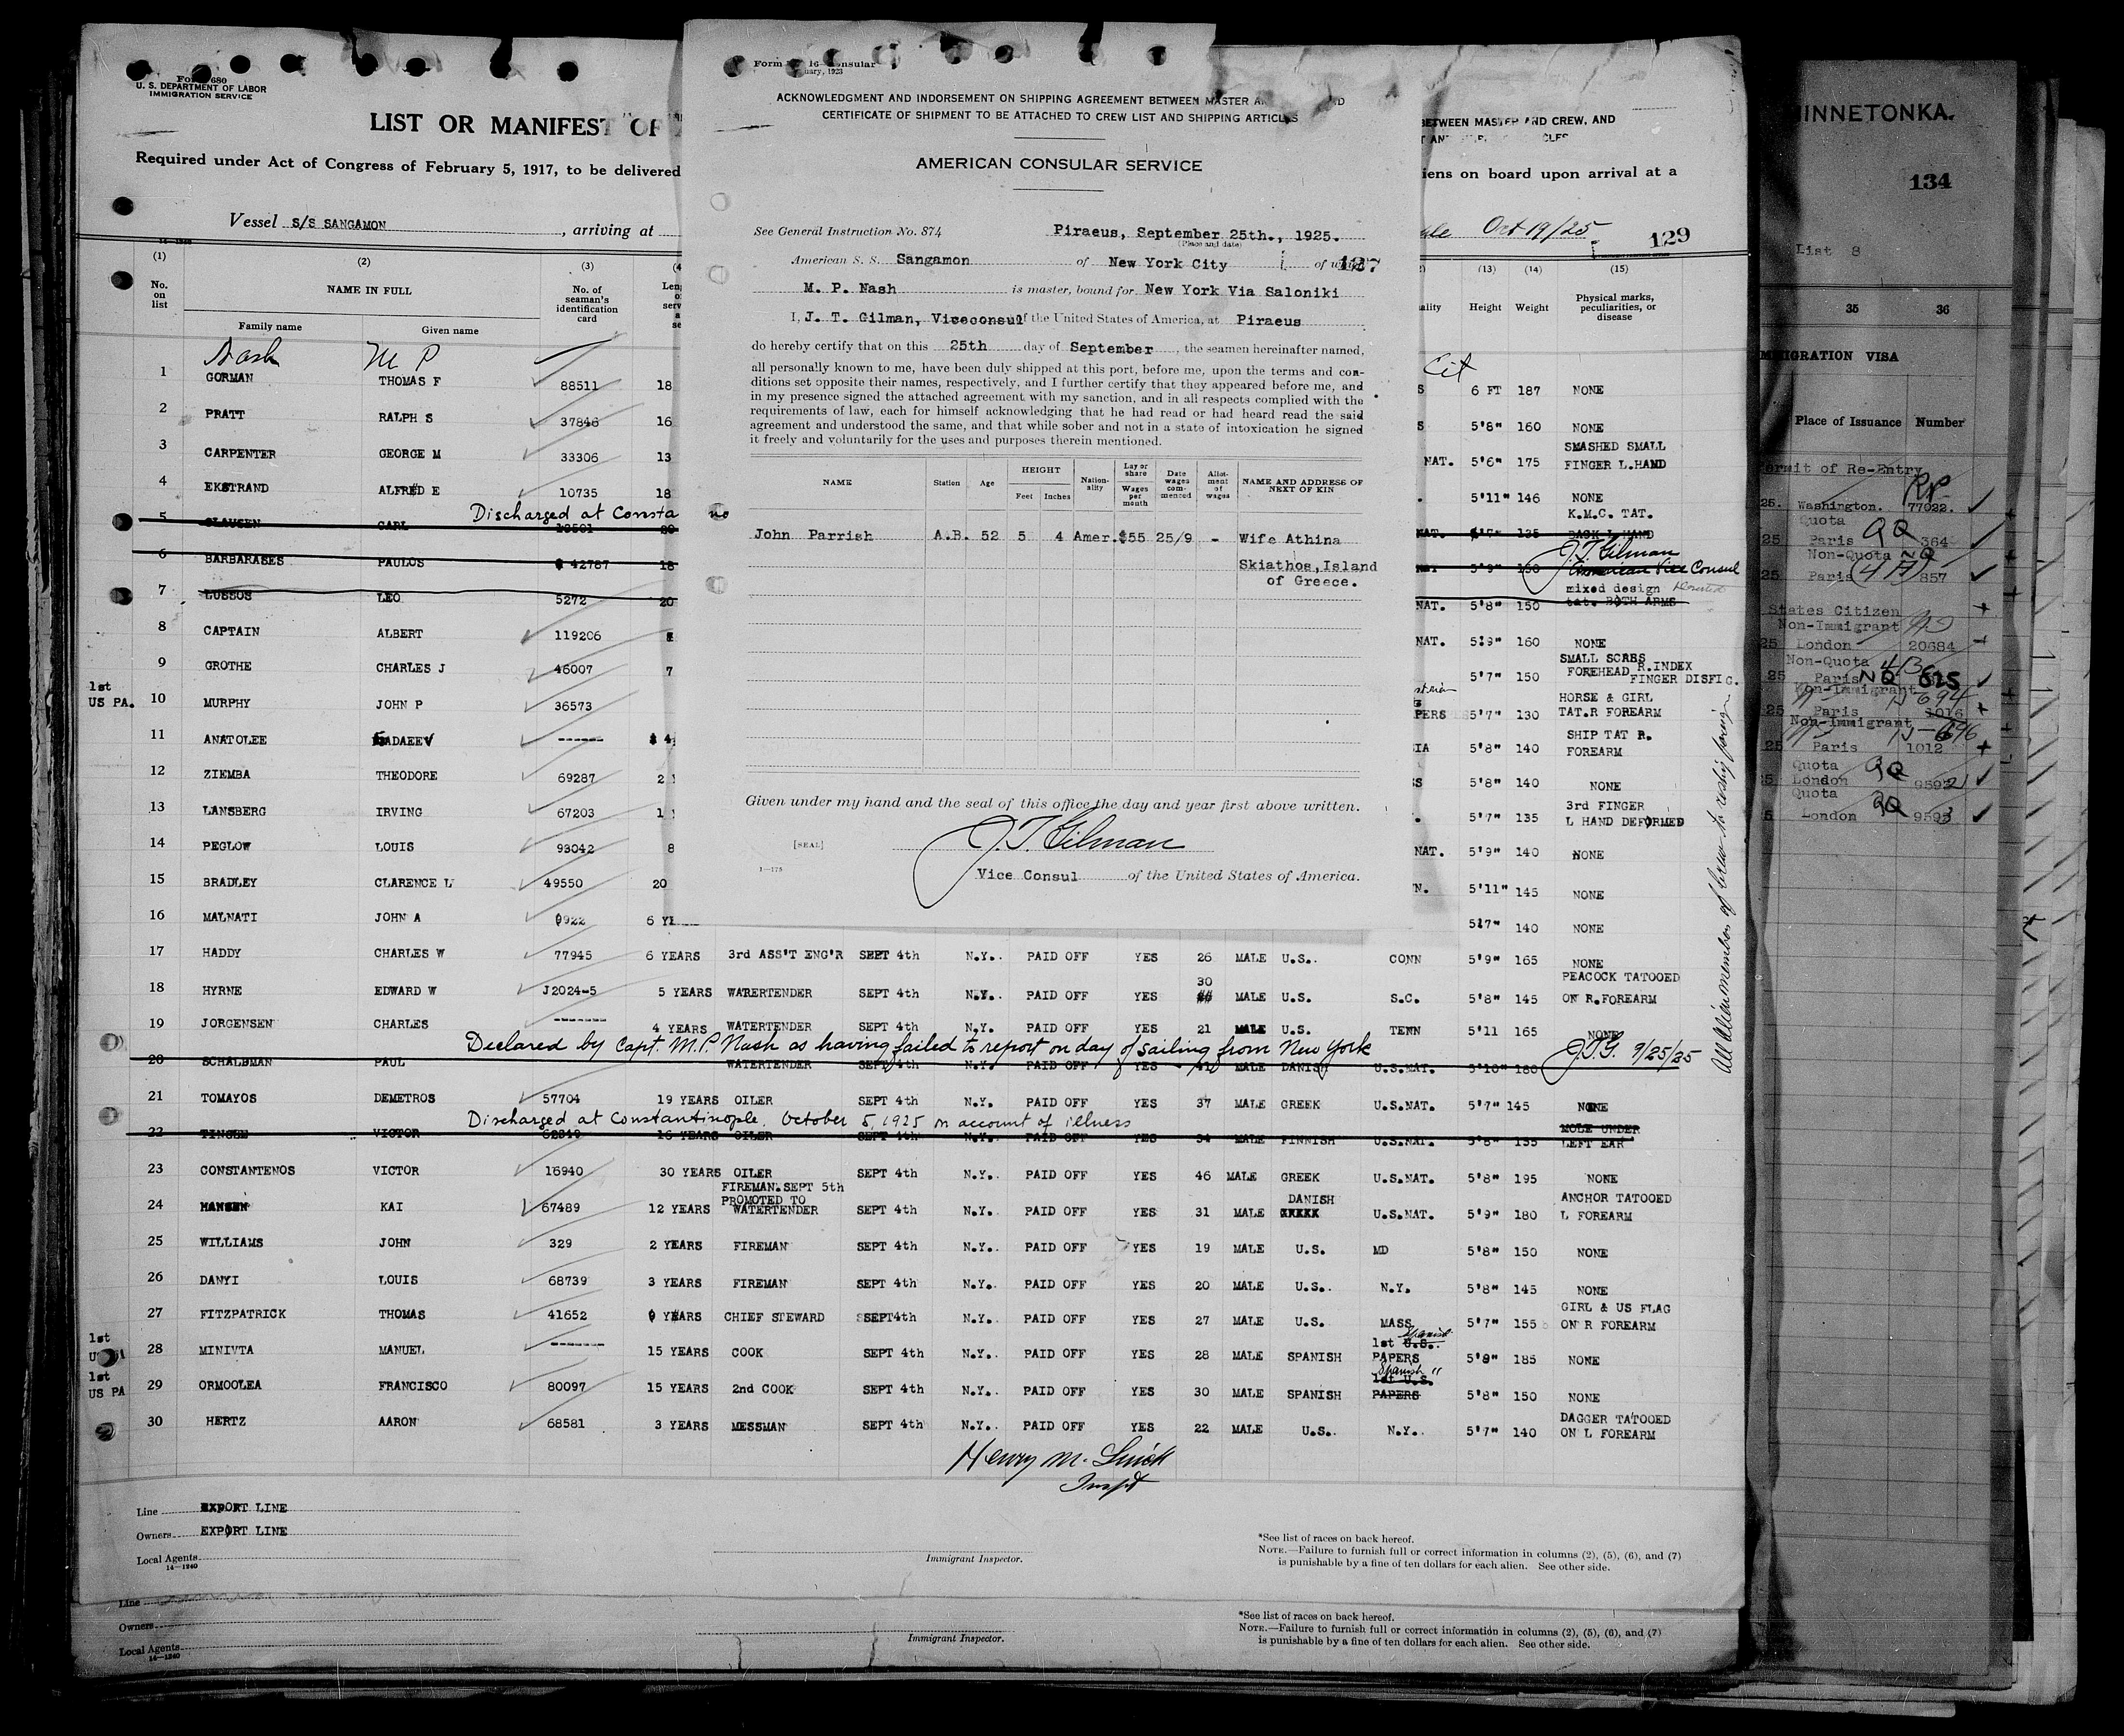 Form 680
U. S. DEPARTMENT OF LABOR
IMMIGRATION SERVICE
LIST OR MANIFEST OF
Required under Act of Congress of February 5, 1917, to be delivered
iens on board upon arrival at a
Vessel S/S SANGAMON, arriving at
Oct 19/25
129
(1) (2) (3)
No. on list
NAME IN FULL
Family name Given name
No. of seaman's identification card
(13) (14) (15)
Height Weight Physical marks, peculiarities, or disease
Nash M P Cit
1 GORMAN THOMAS F 88511 18 S 6 FT 187 NONE
2 PRATT RALPH S 37846 16 S 5'8" 160 NONE
3 CARPENTER GEORGE M 33306 13 NAT. 5'6" 175 SMASHED SMALL FINGER L.HAND
4 EKSTRAND ALFRED E 10735 18 5'11" 146 NONE
Discharged at Consta
5 CLAUSEN CARL NAT. 135 K.M.C. TAT. BACK L HAND
J.T. Gilman
American Vice Consul
6 BARBARASES PAULOS 42787 18 5'9"
7 LUSSOS LEO 5272 20 NAT. 5'8" 150 mixed design tat. BOTH ARMS
8 CAPTAIN ALBERT 119206 NAT. 5'9" 160 NONE
9 GROTHE CHARLES J 46007 7 5'7" 150 SMALL SCABS FOREHEAD R.INDEX FINGER DISFIG.
1st US PA.
10 MURPHY JOHN P 36573 PERS 5'7" 130 HORSE & GIRL TAT.R FOREARM
11 ANATOLEE IA 5'8" 140 SHIP TAT R. FOREARM
12 ZIEMBA THEODORE 69287 2 S 5'8" 140 NONE
13 LANSBERG IRVING 67203 1 5'7" 135 3rd FINGER L HAND DEFORMED
14 PEGLOW LOUIS 93042 8 NAT. 5'9" 140 NONE
15 BRADLEY CLARENCE L 49550 20 N. 5'11" 145 NONE
16 MALNATI JOHN A 9922 6 YE 5'7" 140 NONE
17 HADDY CHARLES W 77945 6 YEARS 3rd ASS'T ENG'R SEPT 4th N.Y. PAID OFF YES 26 MALE U.S. CONN 5'9" 165 NONE
18 HYRNE EDWARD W J2024-5 5 YEARS WATERTENDER SEPT 4th N.Y. PAID OFF YES 30 MALE U.S. S.C. 5'8" 145 PEACOCK TATOOED ON R.FOREARM
19 JORGENSEN CHARLES ------ 4 YEARS WATERTENDER SEPT 4th N.Y. PAID OFF YES 21 MALE U.S. TENN 5'11 165 NONE
Declared by Capt. M.P. Nash as having failed to report on day of sailing from New York J.T.G. 9/25/25
20 SCHALBMAN PAUL WATERTENDER SEPT 4th N.Y. PAID OFF YES 41 MALE DANISH U.S.NAT. 5'10" 180
21 TOMAYOS DEMETROS 57704 19 YEARS OILER SEPT 4th N.Y. PAID OFF YES 37 MALE GREEK U.S.NAT. 5'7" 145 NONE
Discharged at Constantinople. October 5, 1925 on account of illness
22 VICTOR 16 YEARS OILER SEPT 4th N.Y. PAID OFF YES 34 MALE FINNISH U.S.NAT. 5'8" 135 MOLE UNDER LEFT EAR
23 CONSTANTENOS VICTOR 16940 30 YEARS OILER SEPT 4th N.Y. PAID OFF YES 46 MALE GREEK U.S.NAT. 5'8" 195 NONE
24 HANSEN KAI 67489 12 YEARS FIREMAN.SEPT 5th PROMOTED TO WATERTENDER SEPT 4th N.Y. PAID OFF YES 31 MALE DANISH U.S.NAT. 5'9" 180 ANCHOR TATOOED L FOREARM
25 WILLIAMS JOHN 329 2 YEARS FIREMAN SEPT 4th N.Y. PAID OFF YES 19 MALE U.S. MD 5'8" 150 NONE
26 DANYI LOUIS 68739 3 YEARS FIREMAN SEPT 4th N.Y. PAID OFF YES 20 MALE U.S. N.Y. 5'8" 145 NONE
27 FITZPATRICK THOMAS 41652 9 YEARS CHIEF STEWARD SEPT4th N.Y. PAID OFF YES 27 MALE U.S. MASS 5'7" 155 GIRL & US FLAG ON R FOREARM
1st
28 MINIVTA MANUEL ------ 15 YEARS COOK SEPT 4th N.Y. PAID OFF YES 28 MALE SPANISH 1st U.S. Spanish PAPERS 5'9" 185 NONE
1st US PA
29 ORMOOLEA FRANCISCO 80097 15 YEARS 2nd COOK SEPT 4th N.Y. PAID OFF YES 30 MALE SPANISH Spanish " 1st U.S. PAPERS 5'8" 150 NONE
30 HERTZ AARON 68581 3 YEARS MESSMAN SEPT 4th N.Y. PAID OFF YES 22 MALE U.S. N.Y. 5'7" 140 DAGGER TATOOED ON L FOREARM
Henry M.
Inspt
Line EXPORT LINE
Owners EXPORT LINE
Local Agents
14-1240
Immigrant Inspector.
*See list of races on back hereof.
NOTE.—Failure to furnish full or correct information in columns (2), (5), (6), and (7)
is punishable by a fine of ten dollars for each alien. See other side.
Line
Owners
Local Agents
14-1240
Immigrant Inspector.
*See list of races on back hereof.
NOTE.—Failure to furnish full or correct information in columns (2), (5), (6), and (7)
is punishable by a fine of ten dollars for each alien. See other side.
All alien members of crew to reship foreign
ACKNOWLEDGMENT AND INDORSEMENT ON SHIPPING AGREEMENT BETWEEN MASTER AND
CERTIFICATE OF SHIPMENT TO BE ATTACHED TO CREW LIST AND SHIPPING ARTICLES
BETWEEN MASTER AND CREW, AND
AMERICAN CONSULAR SERVICE
See General Instruction No. 874 Piraeus, September 25th., 1925.
(Place and date)
American S. S. Sangamon of New York City of
127
M. P. Nash is master, bound for New York Via Saloniki
I, J. T. Gilman, Viceconsul of the United States of America, at Piraeus
do hereby certify that on this 25th day of September, the seamen hereinafter named,
all personally known to me, have been duly shipped at this port, before me, upon the terms and con-
ditions set opposite their names, respectively, and I further certify that they appeared before me, and
in my presence signed the attached agreement with my sanction, and in all respects complied with the
requirements of law, each for himself acknowledging that he had read or had heard read the said
agreement and understood the same, and that while sober and not in a state of intoxication he signed
it freely and voluntarily for the uses and purposes therein mentioned.
NAME Station Age HEIGHT Feet Inches Nation-ality Lay or share Wages per month Date wages com-menced Allot-ment of wages NAME AND ADDRESS OF NEXT OF KIN
John Parrish A.B. 52 5 4 Amer. $55 25/9 - Wife Athina
Skiathos, Island
of Greece.
Given under my hand and the seal of this office the day and year first above written.
[SEAL] J. T. Gilman
1—175
Vice Consul of the United States of America.
MINNETONKA.
134
List 8
35 36
IMMIGRATION VISA
Place of Issuance Number
Permit of Re-Entry
25. Washington. 77022.
Quota
25 Paris QQ 364
Non-Quota NQ
25 Paris 857
States Citizen
Non-Immigrant
25 London 20684
Non-Quota
25 Paris NQ 615
Non-Immigrant 694
25 Paris 1016
Non-Immigrant
25 Paris 1012
Quota QQ
London 9592
Quota QQ
London 9593